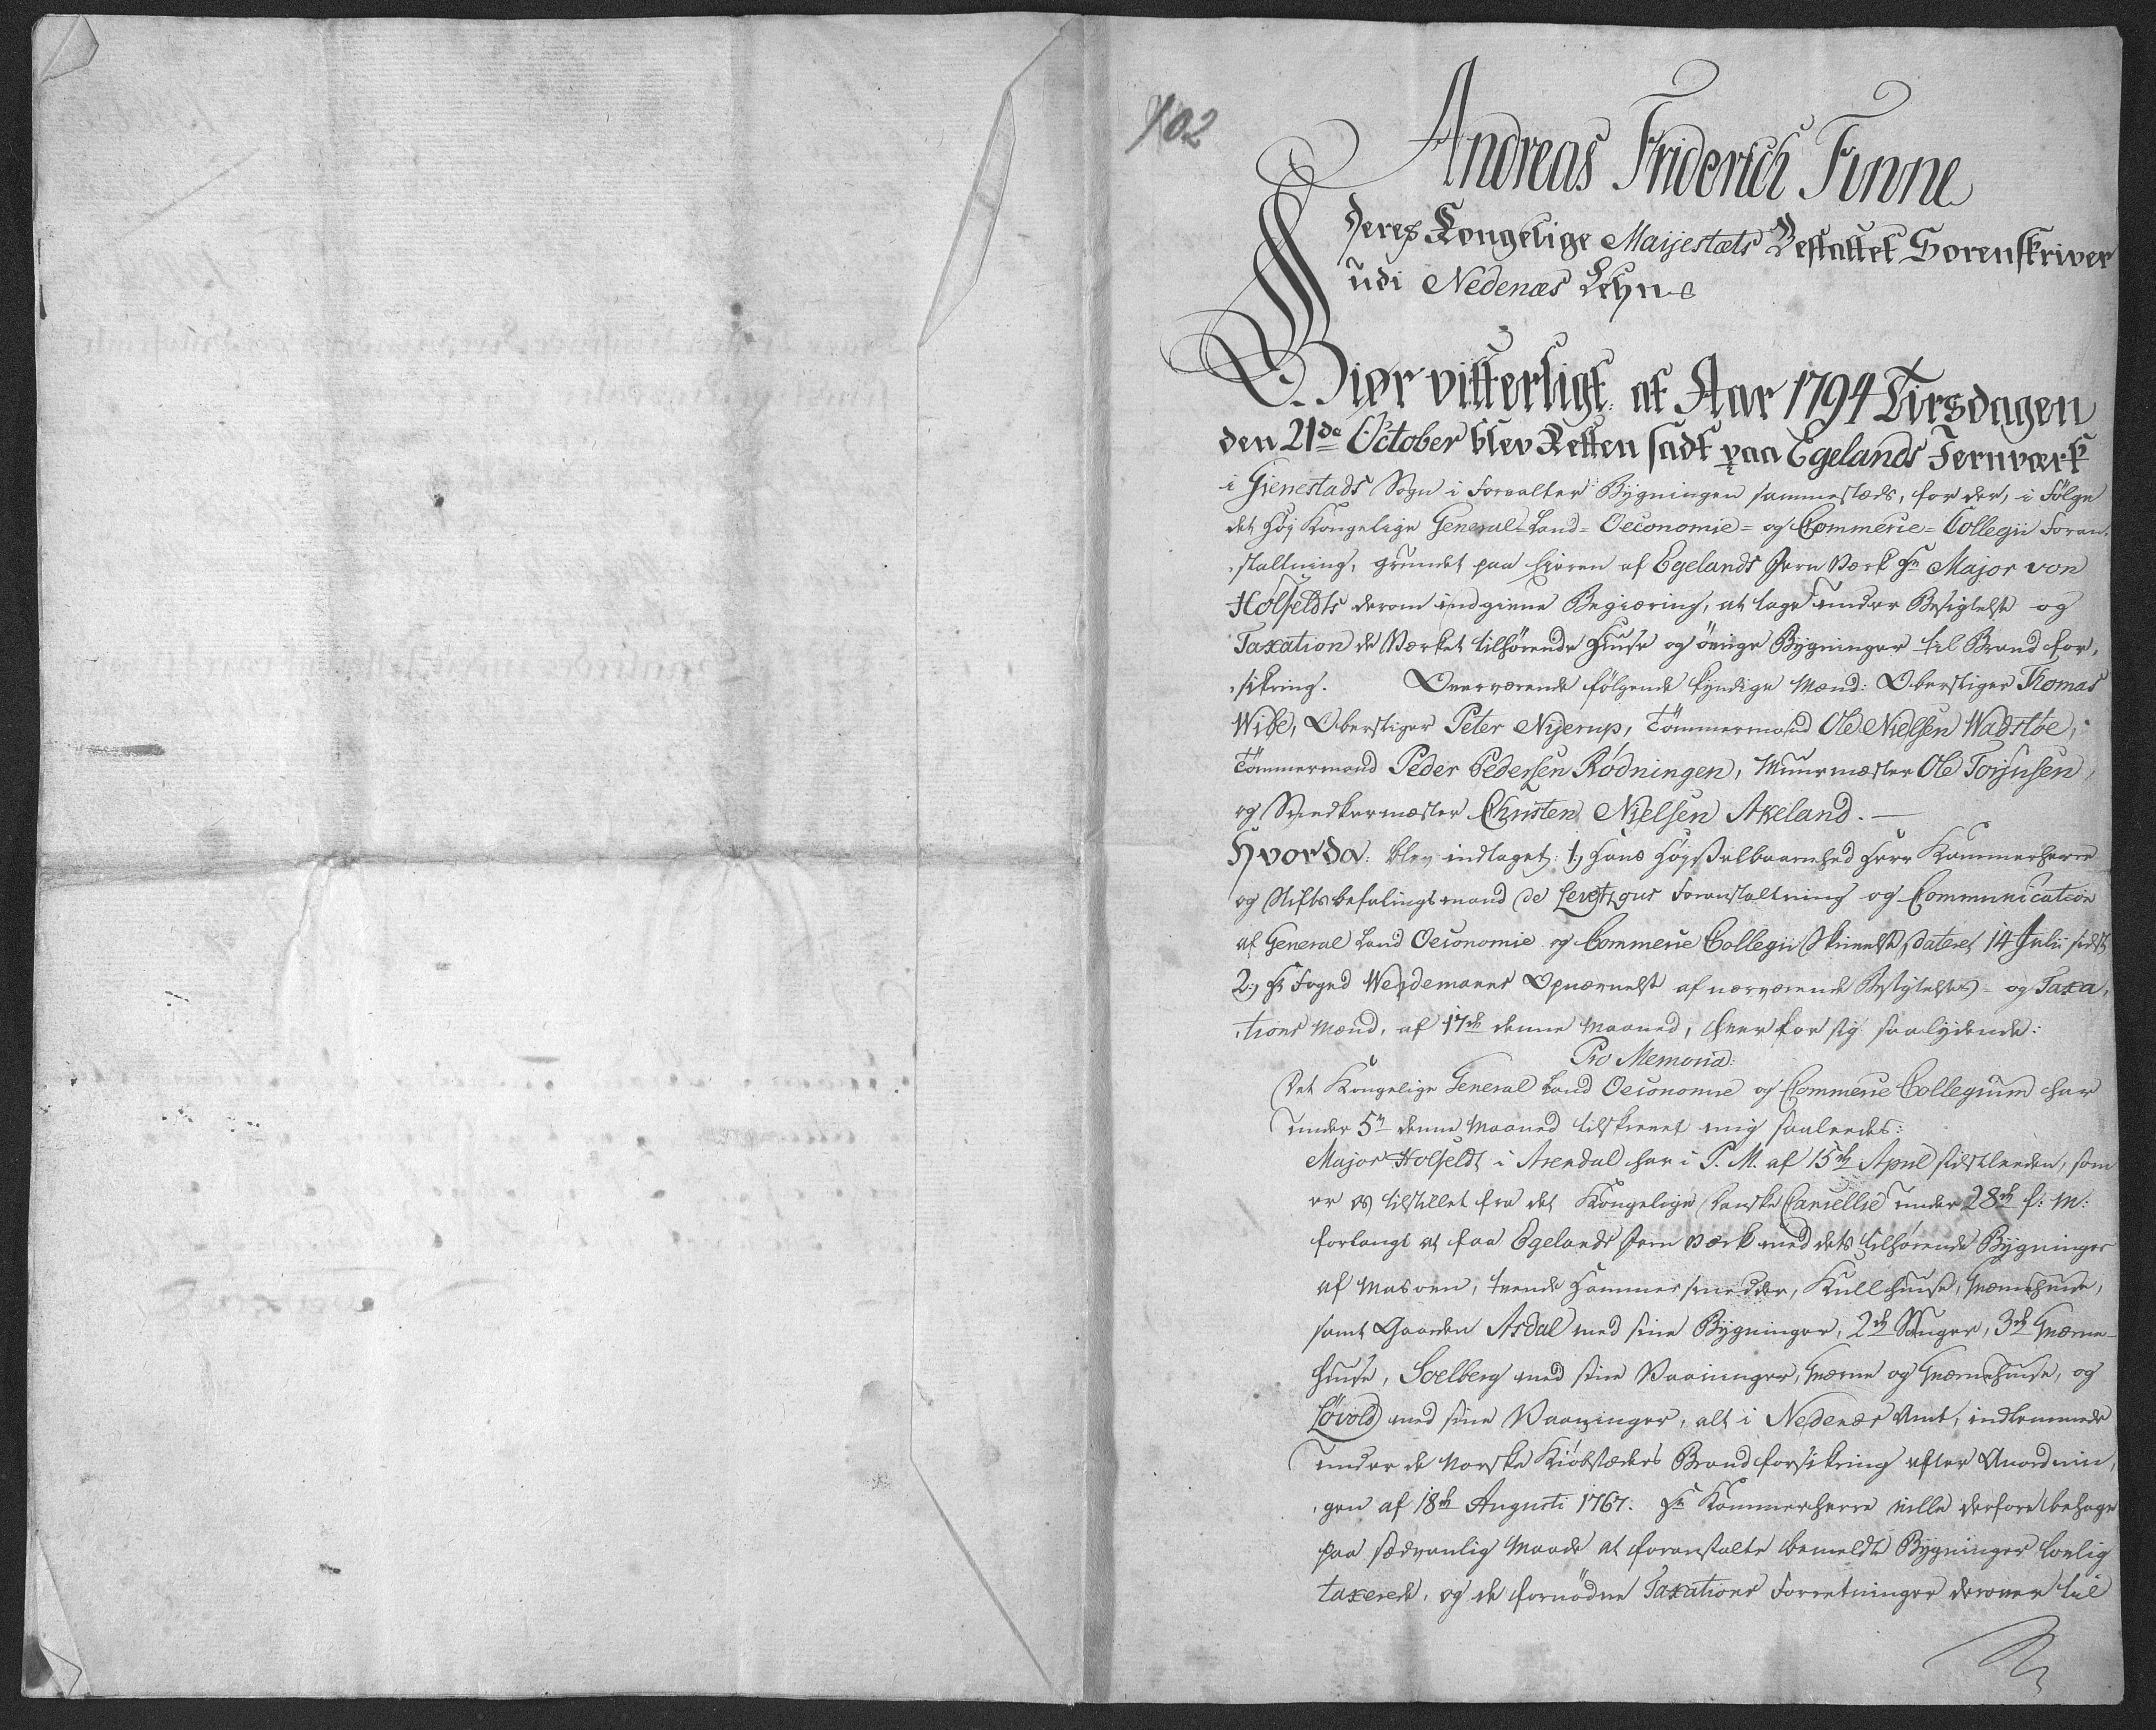 102
Andreas Friderich Finne
Deres Kongelige Maijestæts Bestaltet Sorenskriver
udi Nedenæs Lehn
Giør vitterligt: at Aar 1794 Tirsdagen
den 21de October blev Retten sadt paa Egelands Jernværk
i Gienestads Sogn i Forvalter Bygningen sammesteds, for der, i Følge
det høj Kongelige General-Land-Oeconomie- og Commerce-Collegii Foran-
staltning, grundet paa Eieren af Egelands Jern Værk Hr Major von
Holfeldts derom indgivne Begiæring, at tage under Besigtelse og
Taxation de Værket tilhørende Huuse og øvrige Bygninger til Brand for-
sikring. Overværende følgende kyndige Mænd: Oberstiger Thomas
Wibe, Oberstiger Peter Nyerup, Tømmermand Ole Nielsen Wadstøe,
Tømmermand Peder Pedersen Rødningen, Muurmæster Ole Torjusen,
og Snedkermæster Christen Nielsen Akeland. —
Hvorda: blev indtaget: 1.) Hans Høyædelbaarenhed Herr Kammerherre
og Stiftsbefalingsmand de Levetzaus Foranstaltning og Communication
af General Land Oeconomie og Commerce Collegii Skrivelse dateret 14 Julii sidst
2.) Hr Foged Weydemanns Opnævnelse af nærværende Besigtelses- og Taxa-
tions Mænd, af 17de denne Maaned, hver for sig saalydende:
Pro Memoria:
Det Kongelige General Land Oeconomie og Commerce Collegium har
under 5te denne Maaned tilskrevet mig saaledes:
Major Holfeldt i Arendal har i P. M. af 15de April sidstleeden, som
er os tilstillet fra det Kongelige Danske Cancellie under 28de f: M:
forlangt at faa Egelands Jern Værk med dets tilhørende Bygninger
af Masovn, tvende Hammersmedder, Kullhuuse, Qværnehuuse,
samt Gaarden Asdal med sine Bygninger, 2de Sauger, 3de Qværne-
huuse, Soelberg med sine Vaaninger, Qværne og Qværnehuuse, og
Løvold med sine Vaaninger, alt i Nedenæs Amt, indlemmede
under de Norske Kiøbstæders Brandforsikring efter Anordnin-
gen af 18de Augusti 1767. Hr Kammerherre ville derfore behage
paa sædvanlig Maade at foranstalte bemeldte Bygninger lovlig
taxerede, og de fornødne Taxations Forretninger derover til